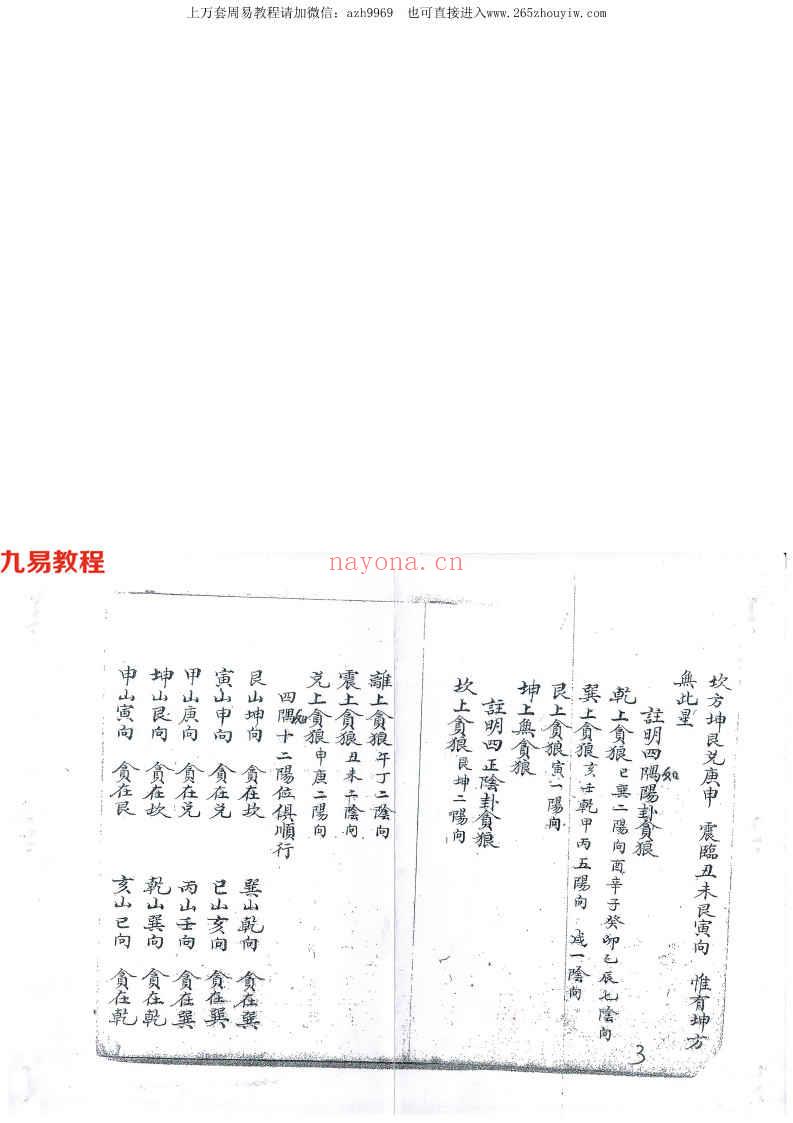 上万套周易教程请加微信：azh9969　也可直接进入www.265zhouyiw.com
九易教程
nayona.cn
坎方坤艮兑庚申　震臨丑未艮寅向　惟有坤方
無此星
註明四隅陽卦貪狼
乾上貪狼巳巽二陽向酉辛子癸卯乙辰七陰向
巽上貪狼亥壬乾甲丙五陽向　戌一陰向
艮上貪狼寅一陽向
坤上無貪狼
註明四正陰卦貪狼
坎上貪狼艮坤二陽向
離上貪狼午丁二陰向
震上貪狼丑未二陰向
兑上貪狼申庚二陽向
四隅十二陽位俱順行
艮山坤向　貪在坎　巽山乾向　貪在巽
寅山申向　貪在兑　巳山亥向　貪在巽
甲山庚向　貪在兑　丙山壬向　貪在巽
坤山艮向　貪在坎　乾山巽向　貪在乾
申山寅向　貪在艮　亥山巳向　貪在乾
3